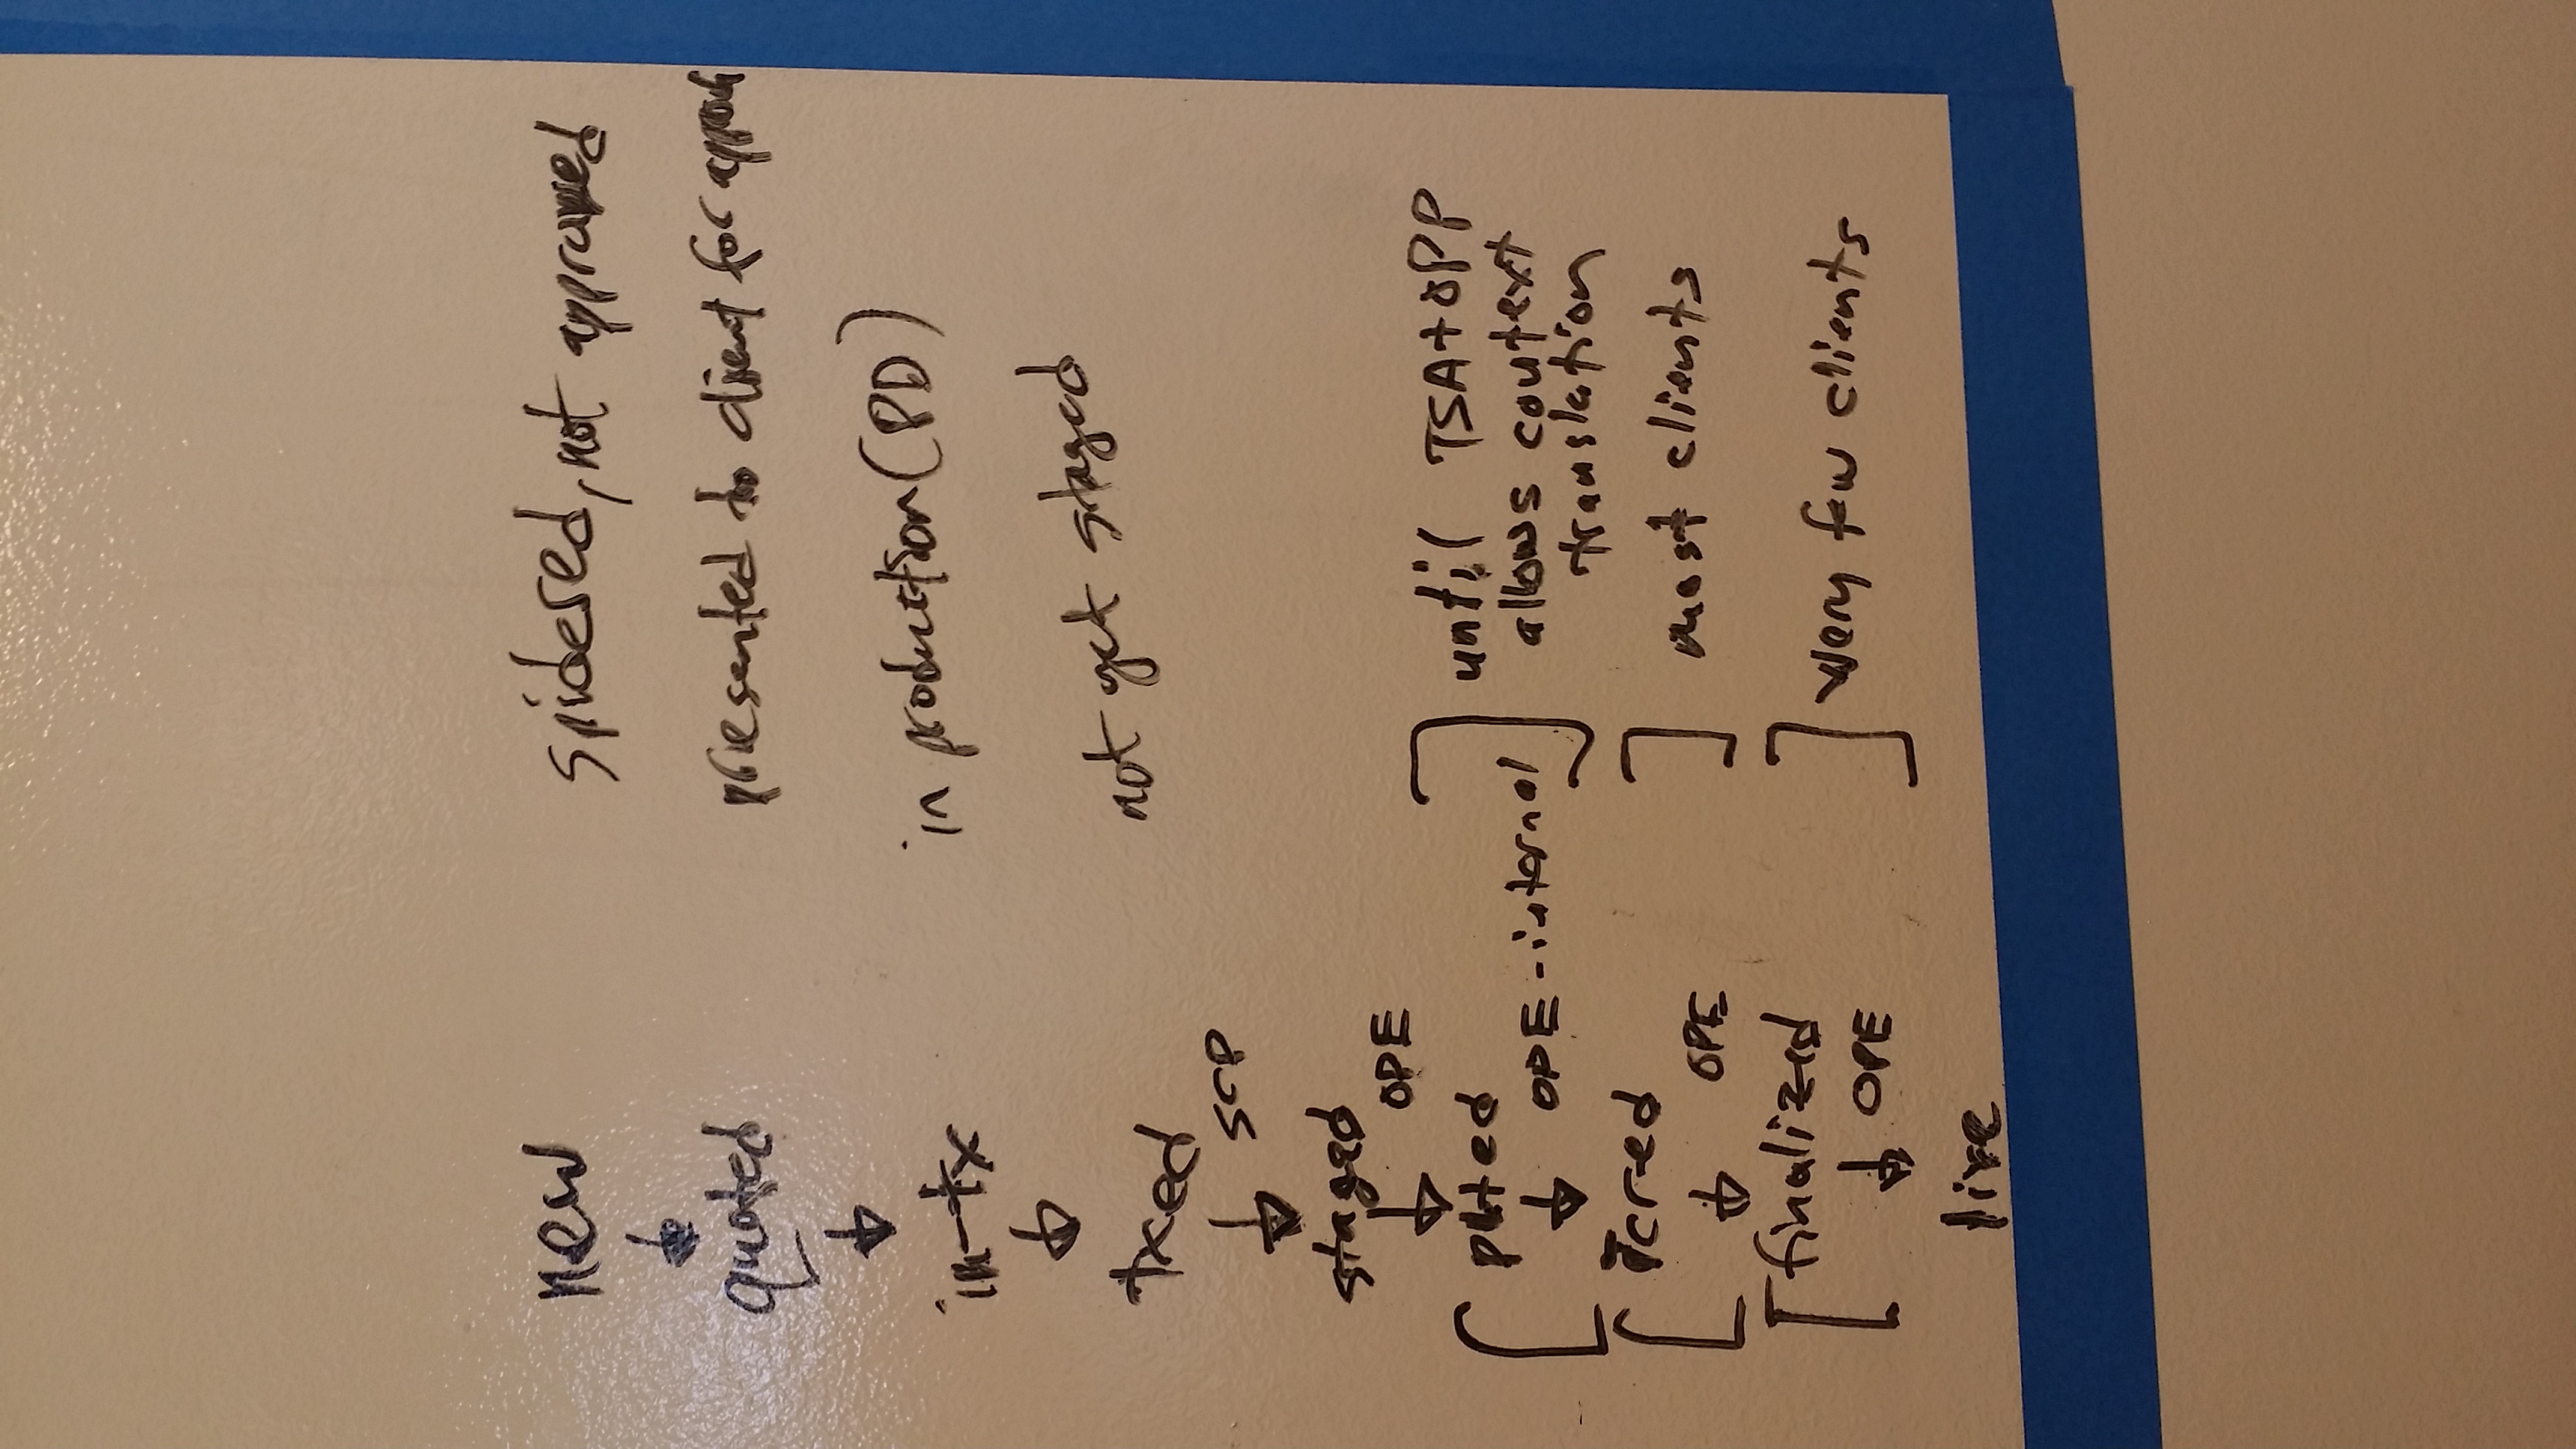 new spidered, not approved
↓
quoted presented to client for approv
↓
in-tx in production (PD)
↓
txed not yet staged
↓ SCP
staged
↓ OPE
[ plted ] until TSA + OPP
↓ OPE-internal allows context
translation
[ icred ] most clients
↓ OPE
[ finalized ] very few clients
↓ OPE
live